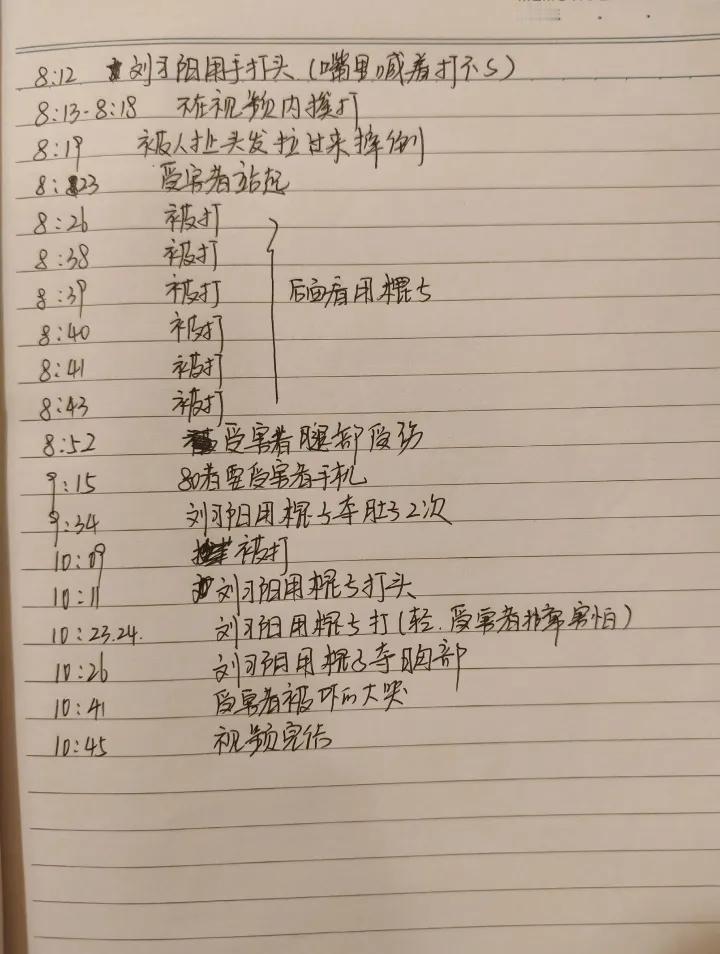 8:12 刘习阳用手打头（嘴里喊着打不S）
8:13-8:18 不在视频内挨打
8:19 被人扯头发拉过来摔倒
8:23 受害者站起
8:26 被打
8:38 被打
8:39 被打 后面看用棍子
8:40 被打
8:41 被打
8:43 被打
8:52 受害者腿部受伤
9:15 要受害者手机
9:34 刘习阳用棍子夯肚子2次
10:09 被打
10:11 刘习阳用棍子打头
10:23.24. 刘习阳用棍子打（轻.受害者非常害怕）
10:26 刘习阳用棍子夯胸部
10:41 受害者被吓的大哭
10:45 视频完结